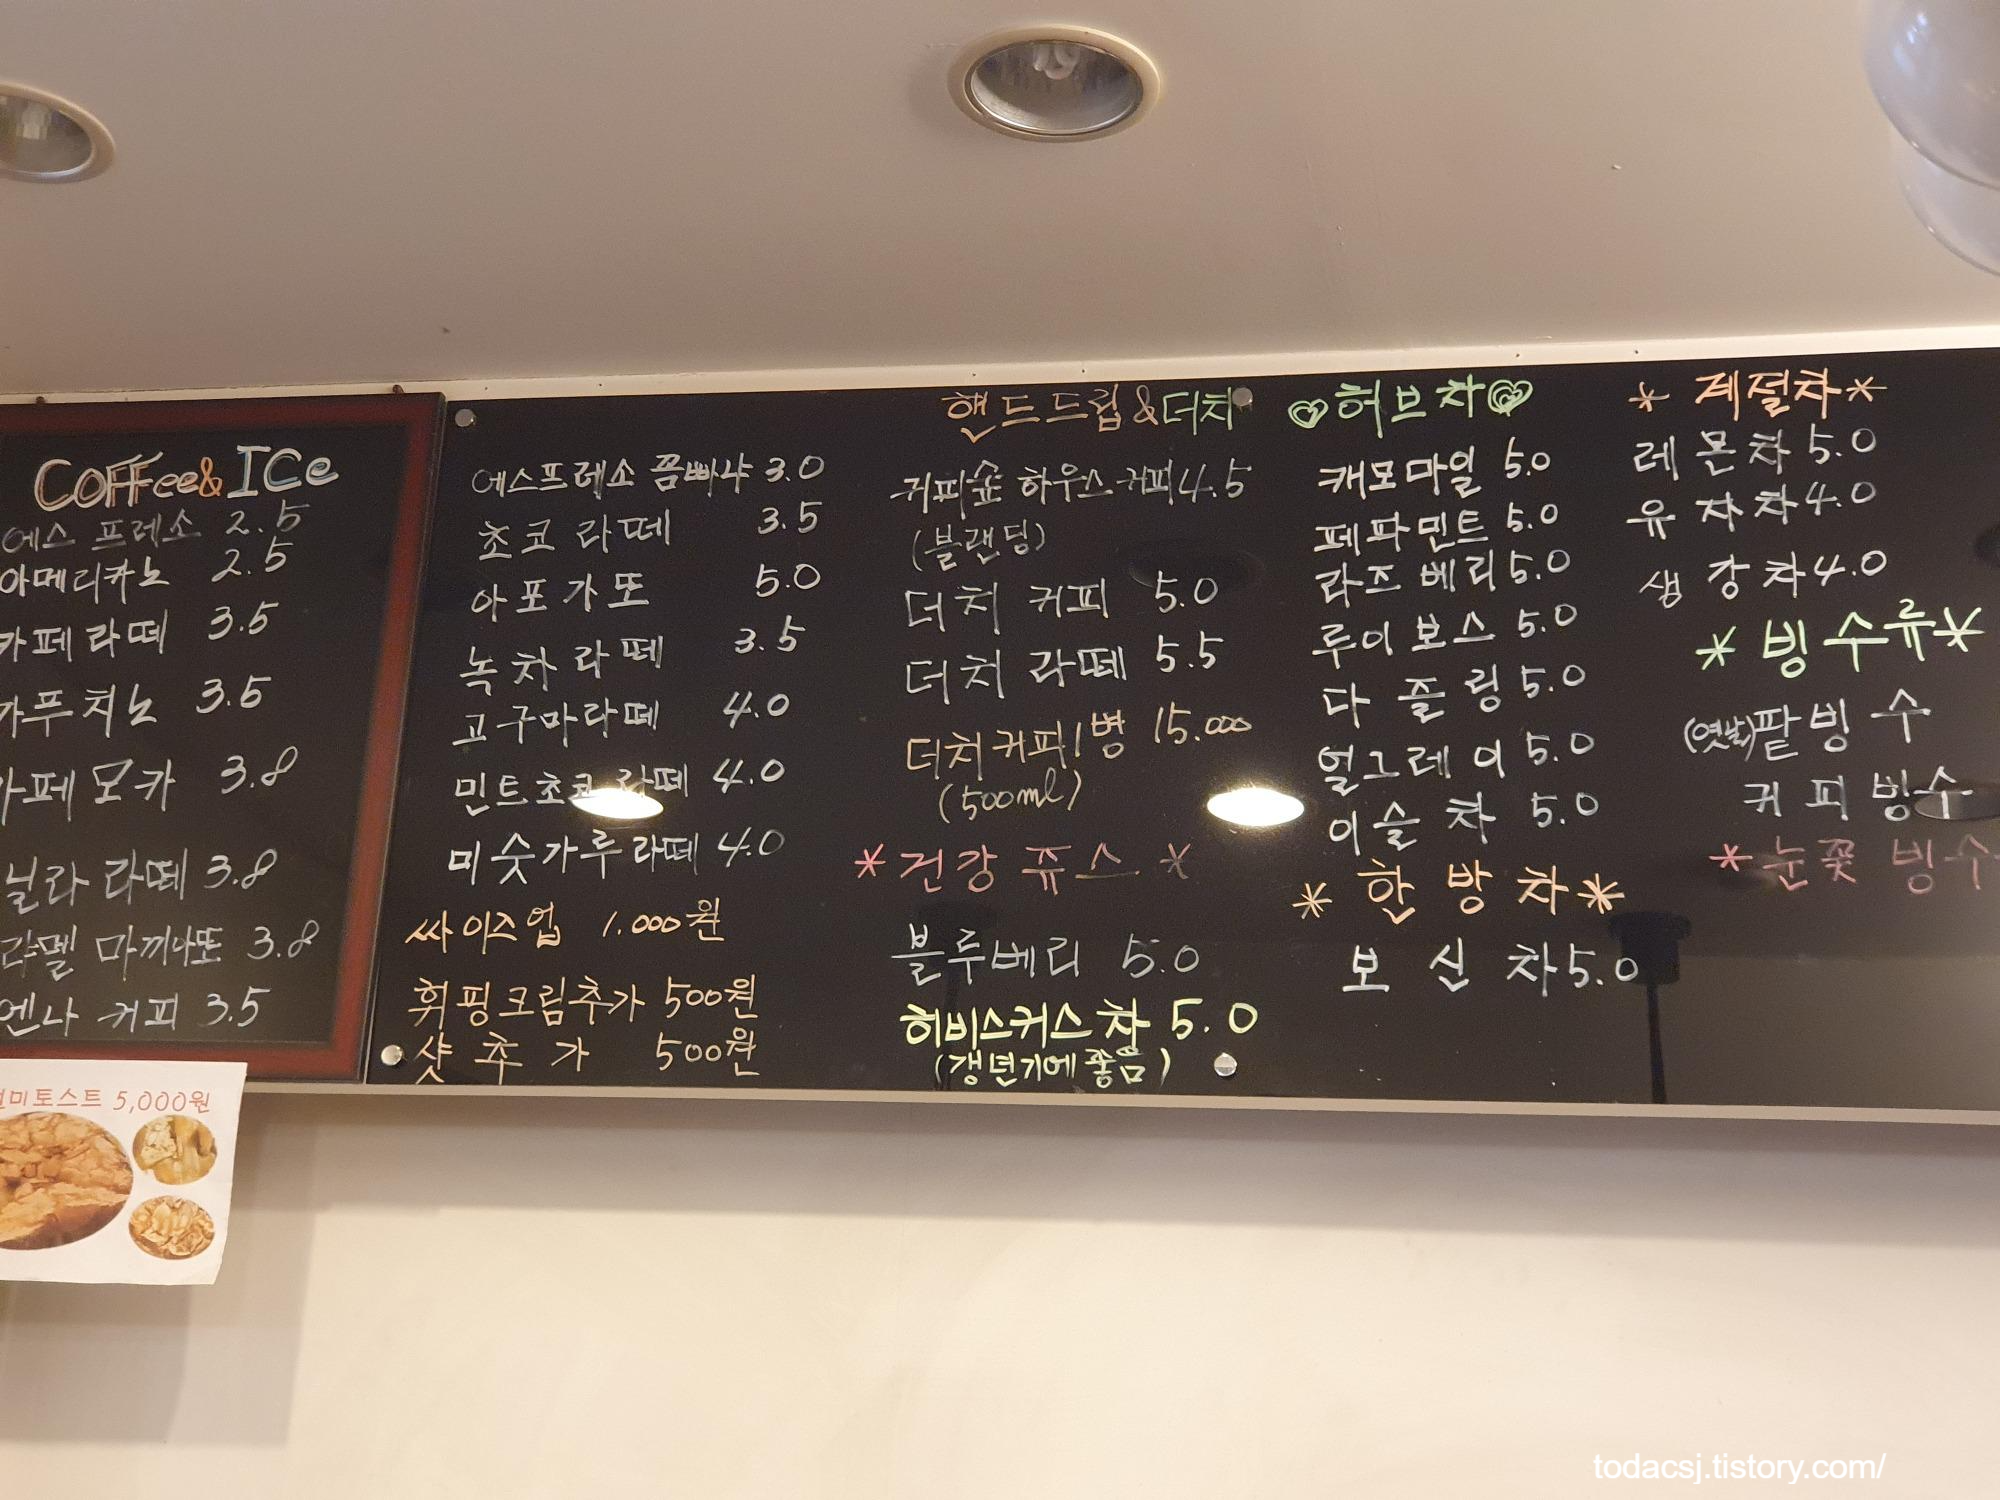 Coffee & ICe
에스프레소 2.5
아메리카노 2.5
카페라떼 3.5
카푸치노 3.5
카페모카 3.8
닐라 라떼 3.8
라멜 마끼아또 3.8
엔나 커피 3.5
에스프레소 꼼빠냐 3.0
초코라떼 3.5
아포가또 5.0
녹차라떼 3.5
고구마라떼 4.0
민트초코라떼 4.0
미숫가루라떼 4.0
싸이즈업 1.000원
휘핑크림추가 500원
샷추가 500원
핸드드립&더치
커피숲 하우스커피 4.5
(블랜딩)
더치 커피 5.0
더치 라떼 5.5
더치커피1병 15.000
(500ml)
*건강 쥬스*
블루베리 5.0
히비스커스차 5.0
(갱년기에좋음)
허브차
캐모마일 5.0
페파민트 5.0
라즈베리 5.0
루이보스 5.0
다즐링 5.0
얼그레이 5.0
이슬차 5.0
*한방차*
보신차 5.0
*계절차*
레몬차 5.0
유자차 4.0
생강차 4.0
*빙수류*
(옛날)팥빙수
커피빙수
*눈꽃 빙수
미토스트 5,000원
todacsj.tistory.com/